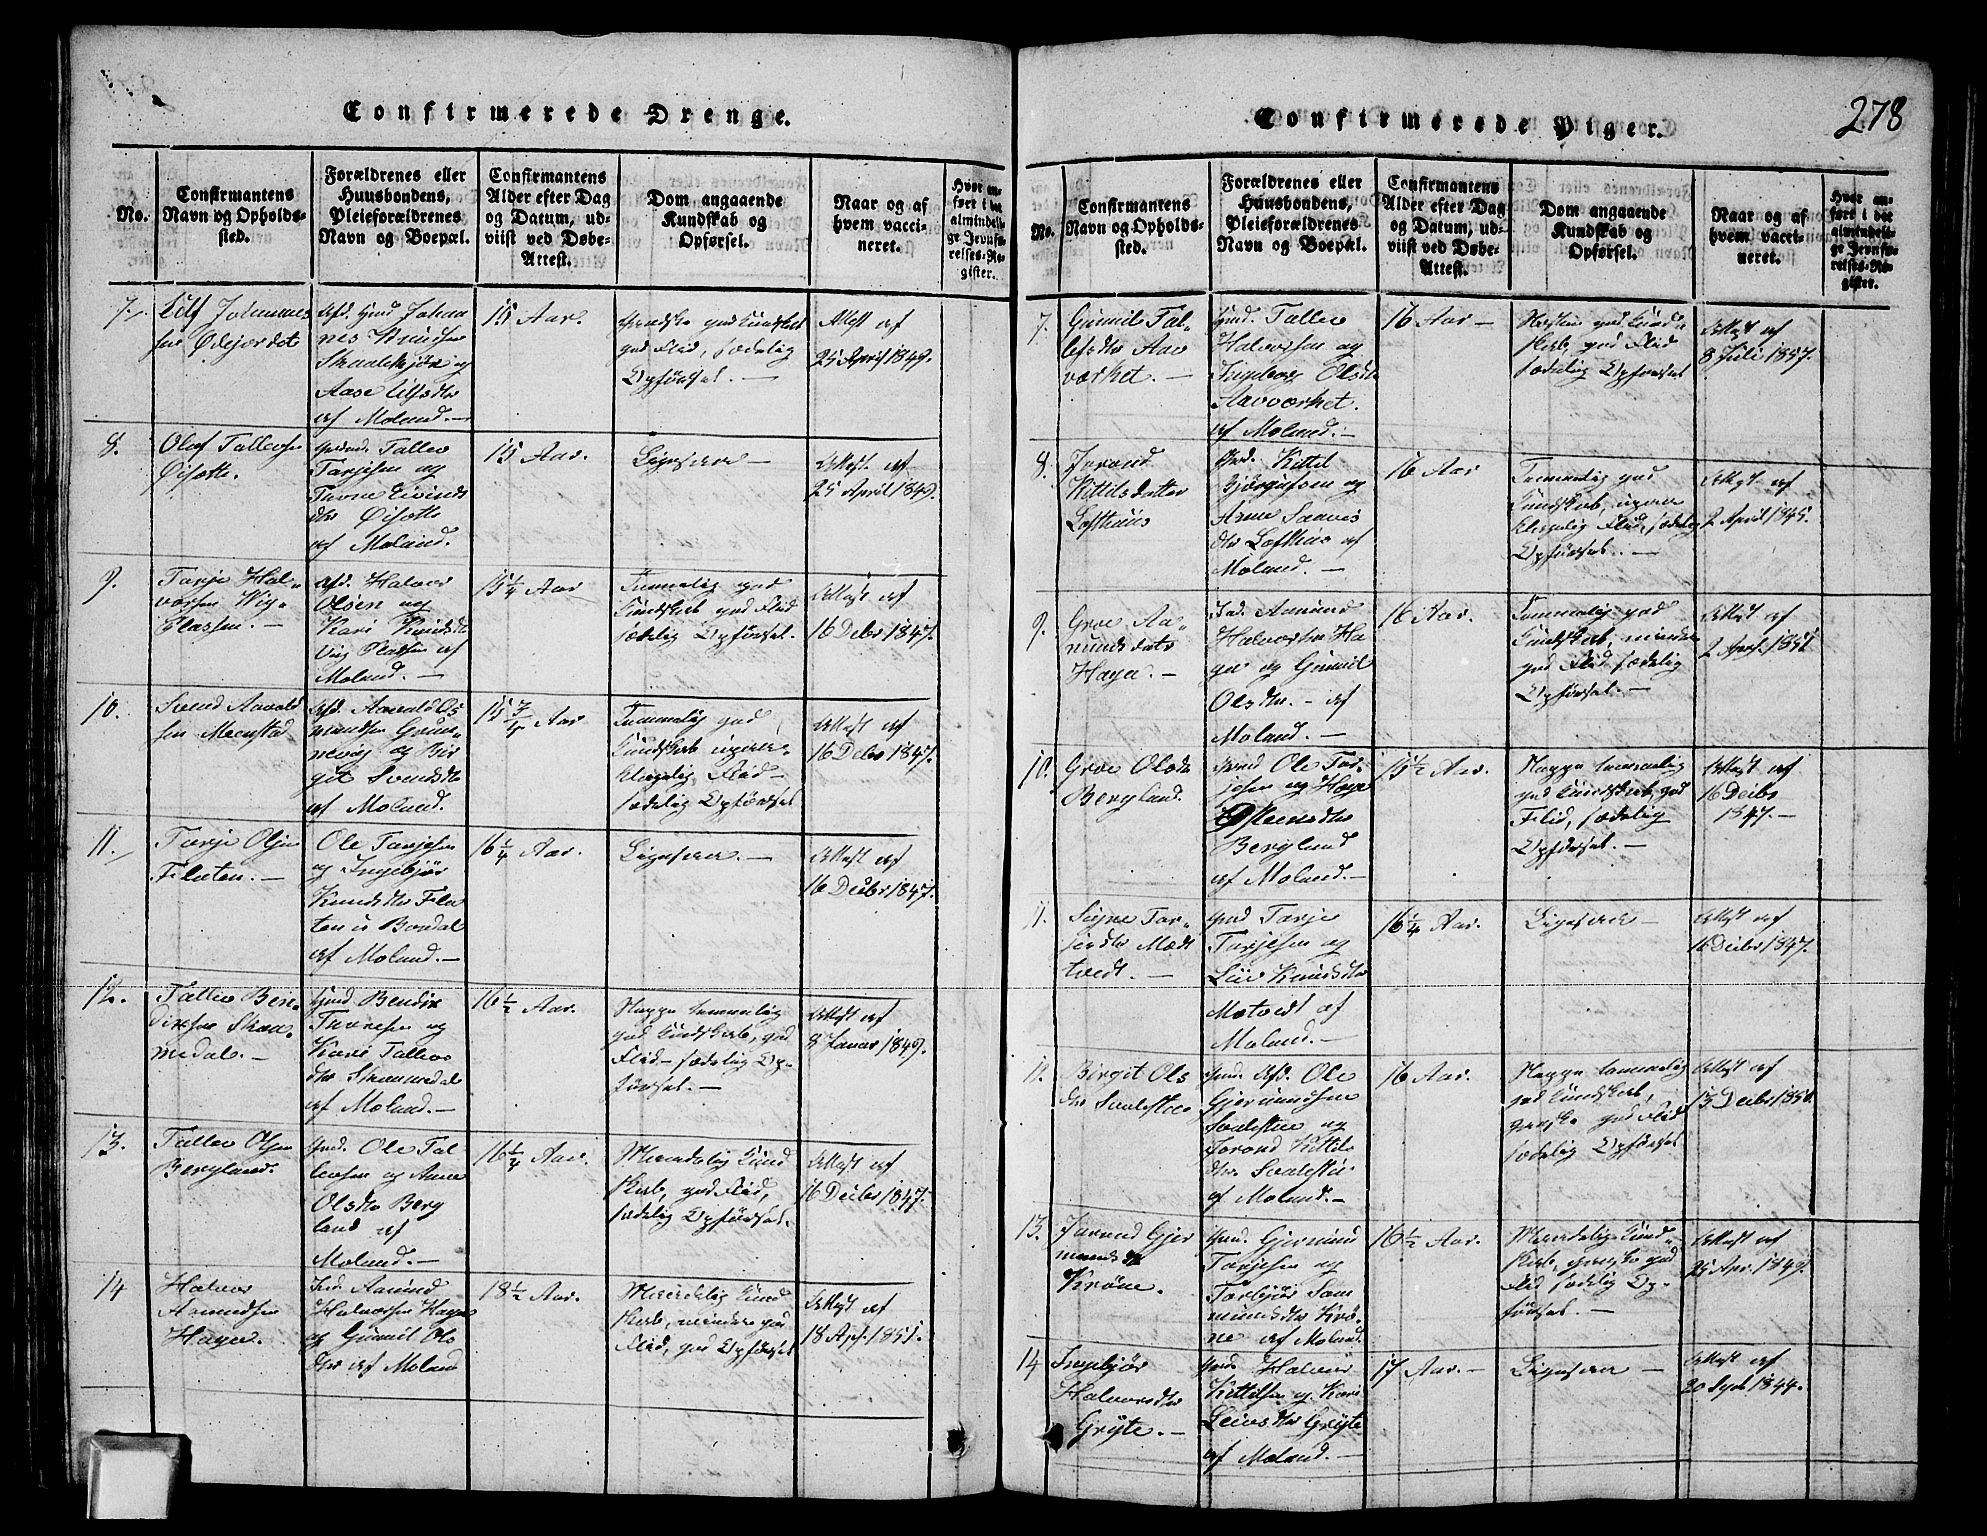 278
Confirmerede Drenge.
No.
Confirmantens
Navn og Opholds-
sted.
Forældrenes eller
Huusbondens,
Pleieforældrenes
Navn og Boepæl.
Confirmantens
Alder efter Dag
og Datum, ud-
viist ved Døbe-
Attest.
Dom angaaende
Kundskab og
Opførsel.
Naar og af
hvem vacci-
neret.
Hvor an-
ført i det
almindeli-
ge Jevnfø-
relses-Re-
gister.
7.
Johannes
sen Ødejordet
Afd. Hmd Johan
nes Knudsen
Skaalskjön og
Aase Ulfsdtr
af Moland.-
15 Aar.
Ganske god Kundskab
god Flid, sædelig
Opførsel.-
Attest af
25 April 1849.
8.
Olaf Tallevsen
Øisotte.
Gmd. Tallev
Tarjesen og
Thone Eivinds
dtr Øisotte
af Moland.
15 Aar.
Ligesaa-
Attest af
25 April 1849.
9.
Tarje Hal-
vorsen Vig-
Plassen.-
Afd. Halvor
Olsen og
Kari Knudsdtr
Vig Plassen af
Moland.-
15 1/4 Aar
Temmelig god
Kundskab god Flid
sædelig Opførsel.
Attest af
16 Decbr 1847.
10.
Svend Aavold
sen Moenstad
Afd. Aavold Os
mundsen Grun-
nevig og Bir
git Svendsdtr
af Moland.
15 3/4 Aar
Temmelig god
Kundskab
Flid-
sædelig Opførsel
Attest af
16 Decbr 1847.
11.
Tarje Olsen
Flaten.-
Ole Tarjesen
og Ingebjör
Knudsdtr Fla
ten i Bordal
af Moland.-
16 1/4 Aar.
Ligesaa.-
Attest af
16 Decbr 1847.
12.
Tallev Ben-
dixsen Skom
medal.-
Hmd Bendix
Thovesen og
Kari Tallevs
dtr Skommedal
af Moland.-
16 1/2 Aar.
Neppe temmelig
god Kundskab, god
Flid- sædelig Op-
førsel.-
Attest af
8 Januar 1849.
13.
Tallev Olsen
Bergland.
Gmd. Ole Tal-
levsen og Anne
Olsdtr Berg
land af
Moland.-
16 1/4 Aar.
Maadelig Kund
skab, god Flid,
sædelig Opførsel.
Attest af
16 Decbr 1847.
14
Halvor
Aamundsen
Hagen.
Ind. Aamund
Halvorsen Hagen
og Gunnil Ols
dtr af Moland
18 1/2 Aar.
Maadelig Kund
skab, mindre god
Flid, god Opførsel
Attest af
18 Apr. 1851.
Confirmerede Piger.
No.
Confirmantens
Navn og Opholds-
sted.
Forældrenes eller
Huusbondens,
Pleieforældrenes
Navn og Boepæl.
Confirmantens
Alder efter Dag
og Datum, ud-
viist ved Døbe-
Attest.
Dom angaaende
Kundskab og
Opførsel.
Naar og af
hvem vacci-
neret.
Hvor an-
ført i det
almindeli-
ge Jevnfø-
relses-Re-
gister.
7.
Gunnil Tal-
lefsdtr Aav
værket.-
Hmd. Tallev
Halvorsen og
Ingeborg Olsdtr
Aavværket.
af Moland.-
16 Aar-
Næsten god Kund-
skab, god Flid
sædelig Opførsel
Attest af
8 Juli 1857.
8.
Jorand
Kittilsdatter
Lofthuus
Gmd. Kittil
Bjørgufsen og
Anne Saavis
dtr Lofthuus af
Moland.-
16 Aar
Temmelig god
Kundskab,
Flid, sædelig
Opførsel.-
Attest af
2 April 1845.
9.
Groe Aa-
mundsdatr
Hagen.-
Ind. Aamund
Halvorsen Ha
gen og Gunnil
Olsdtr.- af
Moland.-
16 Aar.
Temmelig god
Kundskab, mindre
god Flid, sædelig
Opførsel.-
Attest af
2 April 1851
10.
Groe Olsdtr
Bergland.
Gmd Ole Tar-
jesen og Hæge
Østensdtr
Bergland
af Moland.-
15 1/2 Aar.
Neppe temmelig
god Kundskab, god
Flid, sædelig
Opførsel.-
Attest af
16 Decbr
1847.-
11.
Signe Tar-
jesdtr Mædt
tvedt.-
Gmd Tarje
Tarjesen og
Liv Knudsdtr
Motvedt af
Moland.-
16 1/4 Aar.
Ligesaa-
Attest af
16 Decbr 1847.
12.
Birgit Ols
dtr
Gmd. Afd. Ole
Gjermundsen
og
Jorand Kittils
dtr
af Moland.-
16 Aar.
Neppe temmelig
god Kundskab,
ganske god Flid
sædelig Opførsel
Attest af
13 Decbr 1850.
13.
Jorand Gjer
mundsdtr
Krone.
Gmd. Gjermund
Tarjesen og
Torbjør Som
mundsdtr Kro-
ne af Moland.
16 1/2 Aar.
Maadelig Kund-
skab, ganske god
Flid sædelig Op-
førsel.-
Attest af
25 Apr. 1849.
14
Ingebjør
Halvorsdtr
Gryte.-
Gmd. Halvor
Kittilsen og Kari
Leivsdtr Gryte
af Moland.-
17 Aar.-
Ligesaa-
Attest af
20 Sept. 1844.